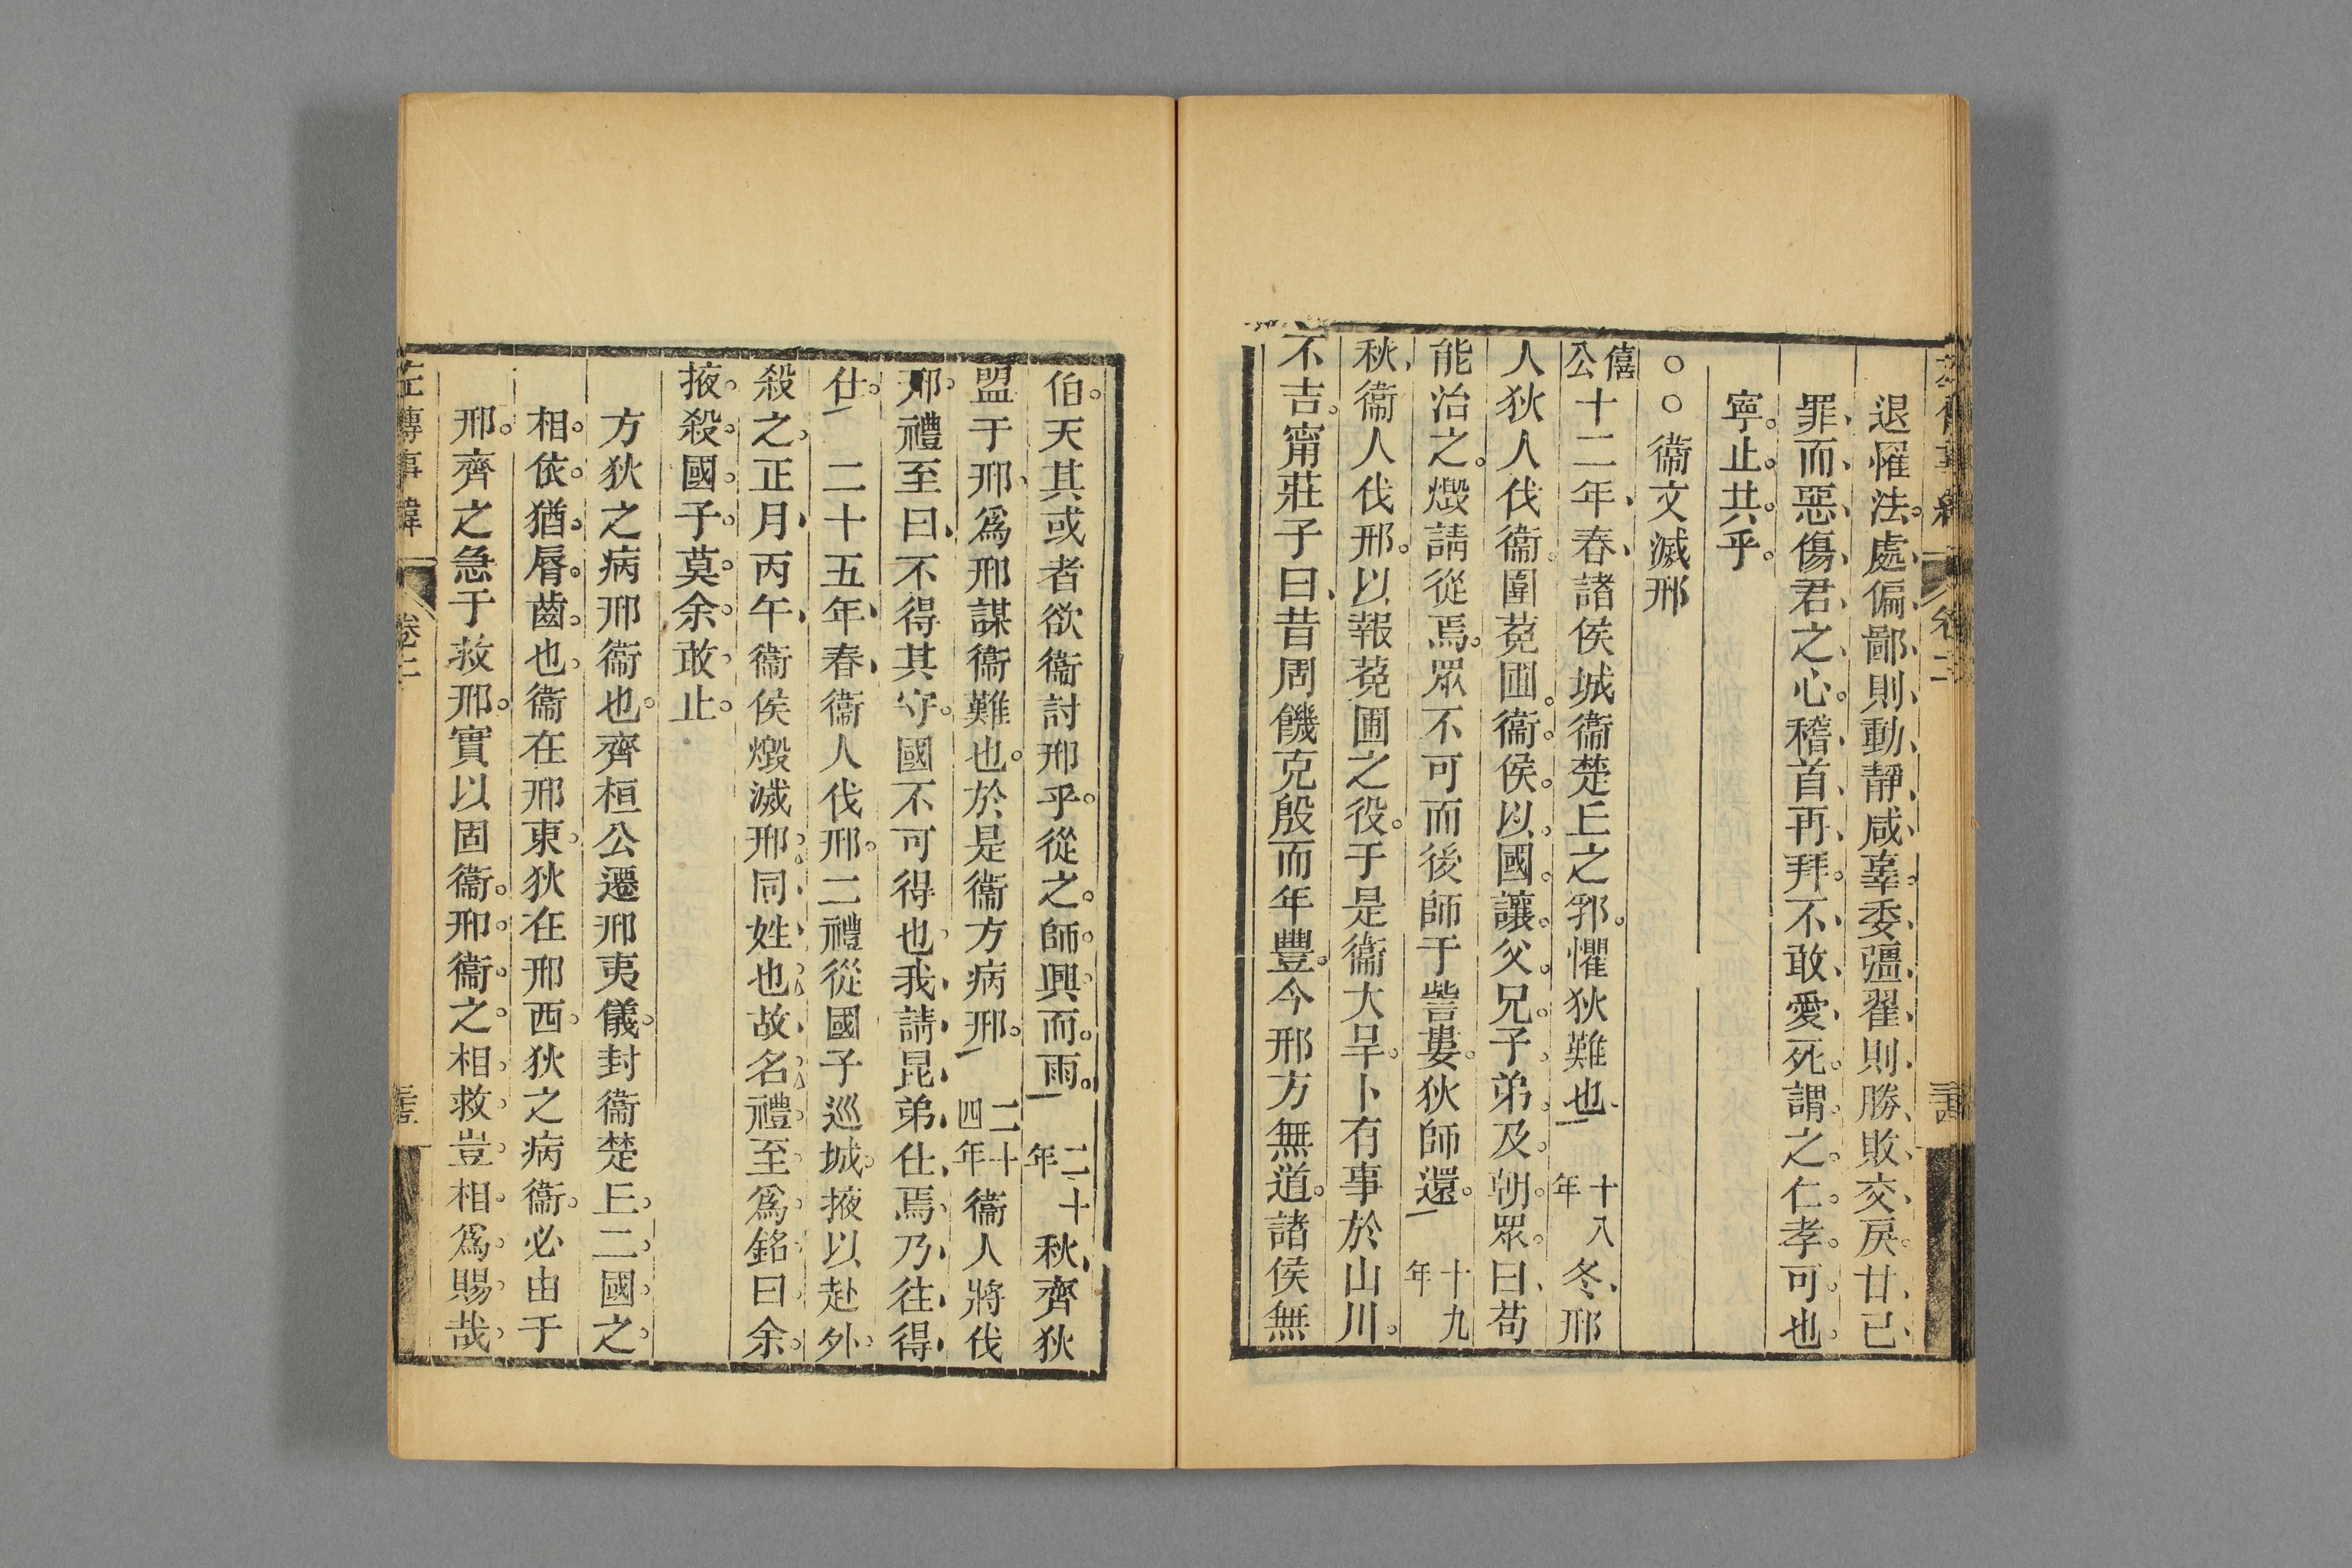 退罹法處偏鄙則動靜咸辜委彊翟則勝敗交戾甘已
罪而惡傷君之心稽首再拜不敢愛死謂之仁孝可也
寧止共乎
○○衞文滅邢
僖公十二年春諸侯城衞楚丘之郛懼狄難也 十八年冬邢
人狄人伐衞圍菟圃衞侯以國讓父兄子弟及朝眾曰苟
能治之燬請從焉眾不可而後師于訾婁狄師還 十九年
秋衞人伐邢以報菟圃之役于是衞大旱卜有事於山川
不吉甯莊子曰昔周饑克殷而年豐今邢方無道諸侯無
伯天其或者欲衞討邢乎從之師興而雨 二十年秋齊狄
盟于邢爲邢謀衞難也於是衞方病邢 二十四年衞人將伐
邢禮至曰不得其守國不可得也我請昆弟仕焉乃往得
仕 二十五年春衞人伐邢二禮從國子巡城掖以赴外
殺之正月丙午衞侯燬滅邢同姓也故名禮至爲銘曰余
掖殺國子莫余敢止
方狄之病邢衞也齊桓公遷邢夷儀封衞楚丘二國之
相依猶脣齒也衞在邢東狄在邢西狄之病衞必由于
邢齊之急于救邢實以固衞邢衞之相救豈相爲賜哉
左傳事緯 卷二